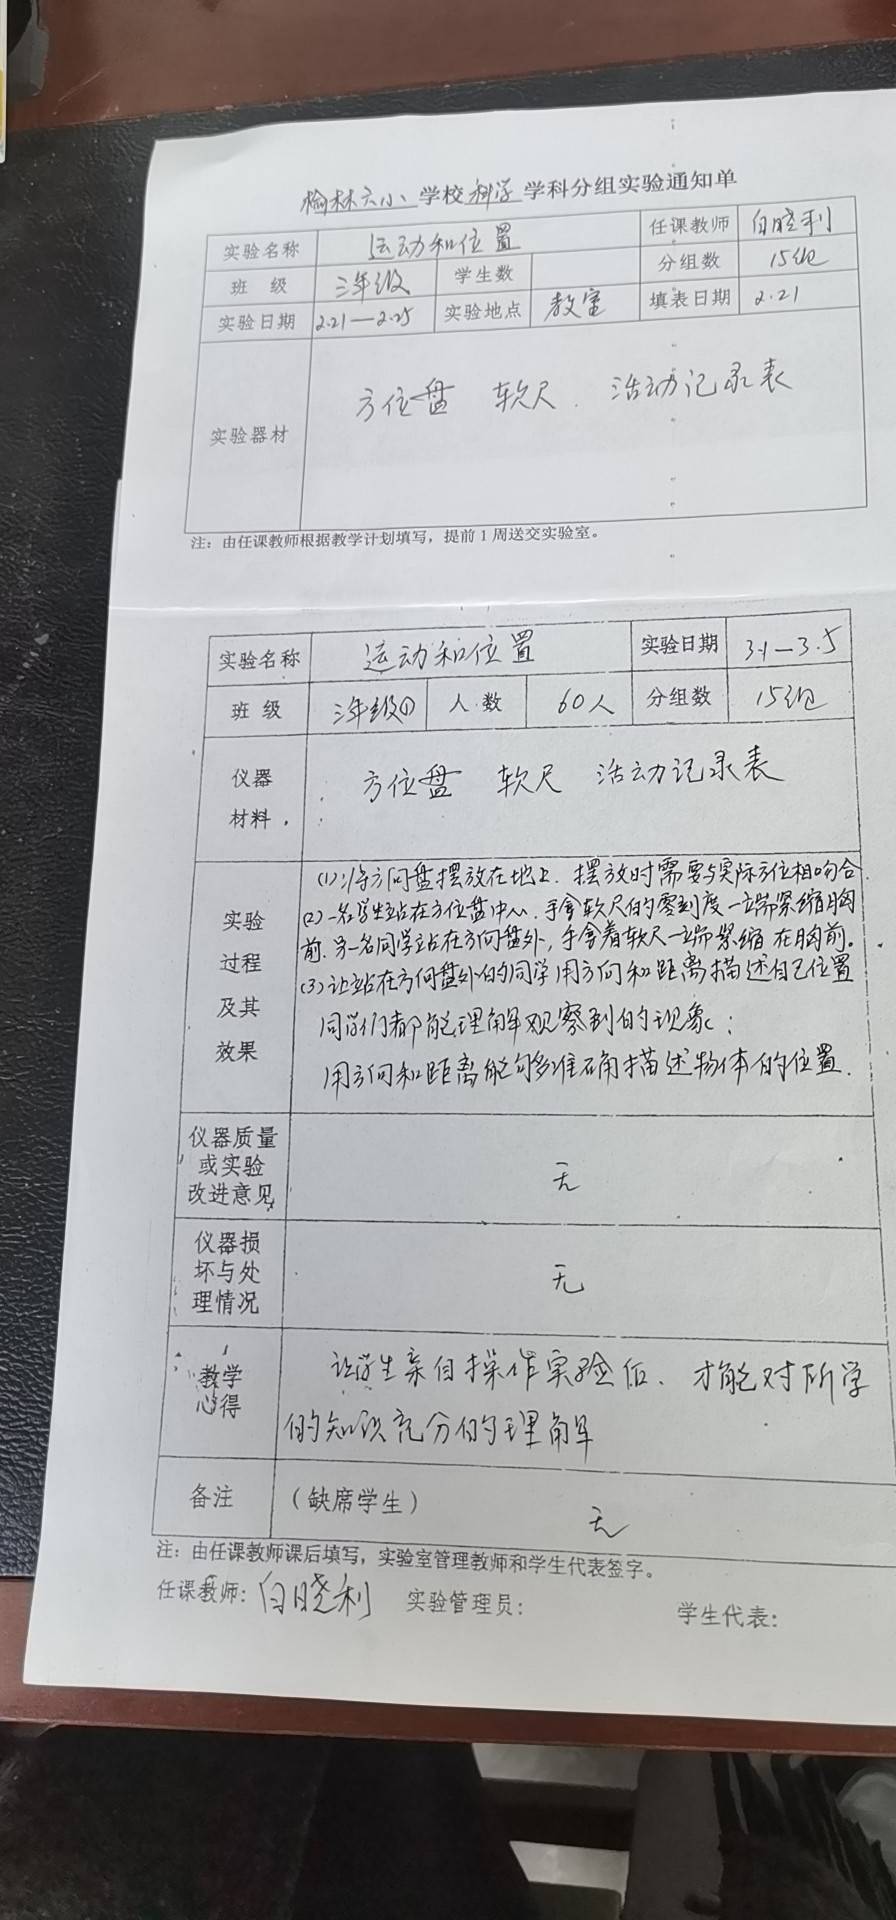 榆林六小 学校 科学 学科分组实验通知单
实验名称 运动和位置 任课教师 白晓利
班 级 三年级 学生数 分组数 15组
实验日期 2.21—2.25 实验地点 教室 填表日期 2.21
实验器材 方位盘 软尺 活动记录表
注：由任课教师根据教学计划填写，提前1周送交实验室。
实验名称 运动和位置 实验日期 3.1—3.5
班 级 三年级① 人 数 60人 分组数 15组
仪器
材料
方位盘 软尺 活动记录表
实验
过程
及其
效果
(1):将方向盘摆放在地上.摆放时需要与实际方位相吻合.
(2)一名学生站在方位盘中心.手拿软尺的零刻度一端紧缩胸
前.另一名同学站在方向盘外,手拿着软尺一端紧缩在胸前。
(3)让站在方向盘外的同学用方向和距离描述自己位置
同学们都能理解观察到的现象;
用方向和距离能够准确描述物体的位置.
仪器质量
或实验
改进意见
无
仪器损
坏与处
理情况
无
教学
心得
让学生亲自操作实验后.才能对所学
的知识充分的理解
备注 （缺席学生） 无
注：由任课教师课后填写，实验室管理教师和学生代表签字。
任课教师: 白晓利 实验管理员: 学生代表: